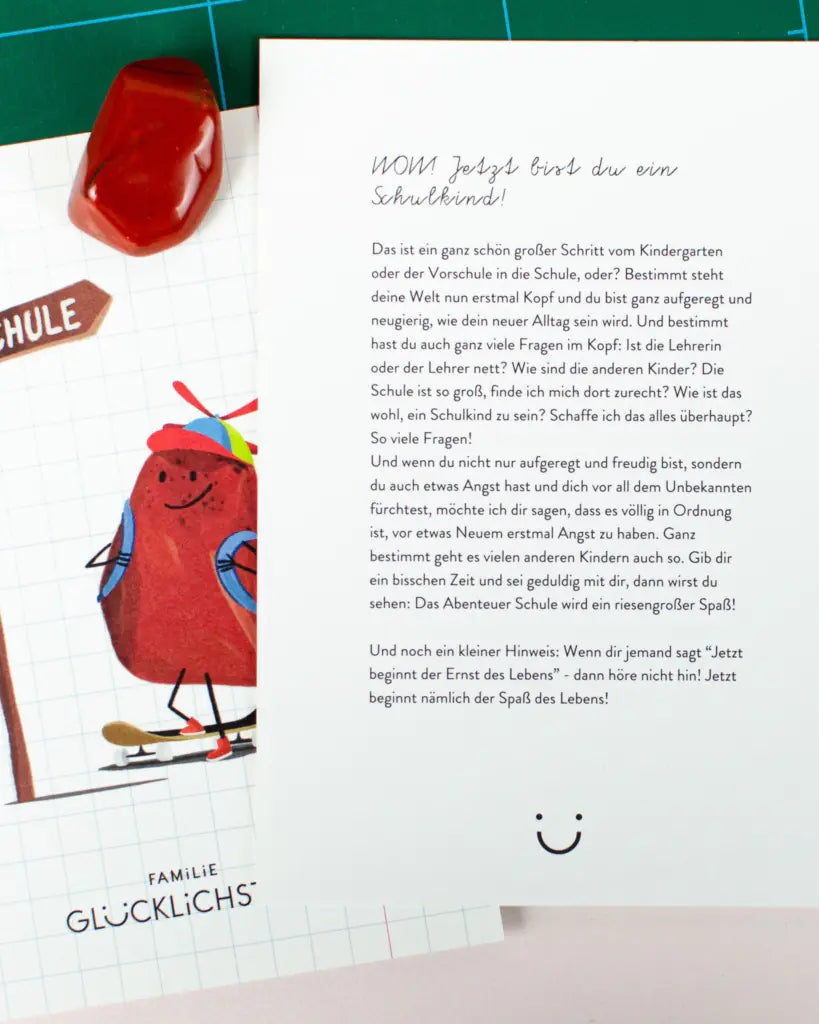 WOW! Jetzt bist du ein
Schulkind!
Das ist ein ganz schön großer Schritt vom Kindergarten
oder der Vorschule in die Schule, oder? Bestimmt steht
deine Welt nun erstmal Kopf und du bist ganz aufgeregt und
neugierig, wie dein neuer Alltag sein wird. Und bestimmt
hast du auch ganz viele Fragen im Kopf: Ist die Lehrerin
oder der Lehrer nett? Wie sind die anderen Kinder? Die
Schule ist so groß, finde ich mich dort zurecht? Wie ist das
wohl, ein Schulkind zu sein? Schaffe ich das alles überhaupt?
So viele Fragen!
Und wenn du nicht nur aufgeregt und freudig bist, sondern
du auch etwas Angst hast und dich vor all dem Unbekannten
fürchtest, möchte ich dir sagen, dass es völlig in Ordnung
ist, vor etwas Neuem erstmal Angst zu haben. Ganz
bestimmt geht es vielen anderen Kindern auch so. Gib dir
ein bisschen Zeit und sei geduldig mit dir, dann wirst du
sehen: Das Abenteuer Schule wird ein riesengroßer Spaß!
Und noch ein kleiner Hinweis: Wenn dir jemand sagt “Jetzt
beginnt der Ernst des Lebens” - dann höre nicht hin! Jetzt
beginnt nämlich der Spaß des Lebens!
CHULE
FAMiLiE
GLÜCKLiCHS